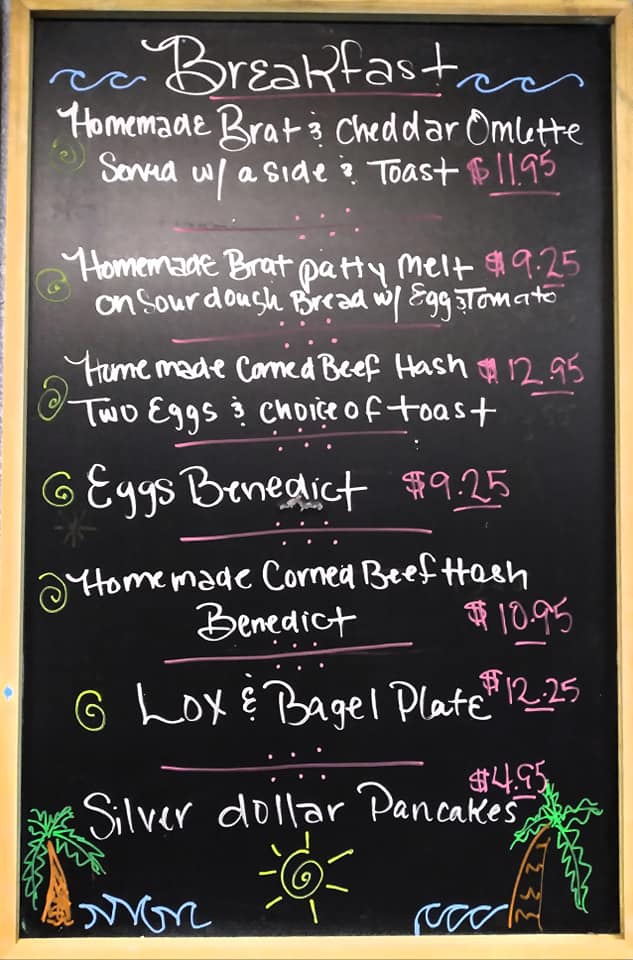 Breakfast
Homemade Brat & Cheddar Omlette
Served w/ a side & Toast $11.95
Homemade Brat patty melt $9.25
on Sourdough Bread w/ Egg & Tomato
Homemade Corned Beef Hash $12.95
Two Eggs & choice of toast
Eggs Benedict $9.25
Homemade Corned Beef Hash
Benedict $10.95
Lox & Bagel Plate $12.25
$4.95
Silver dollar Pancakes